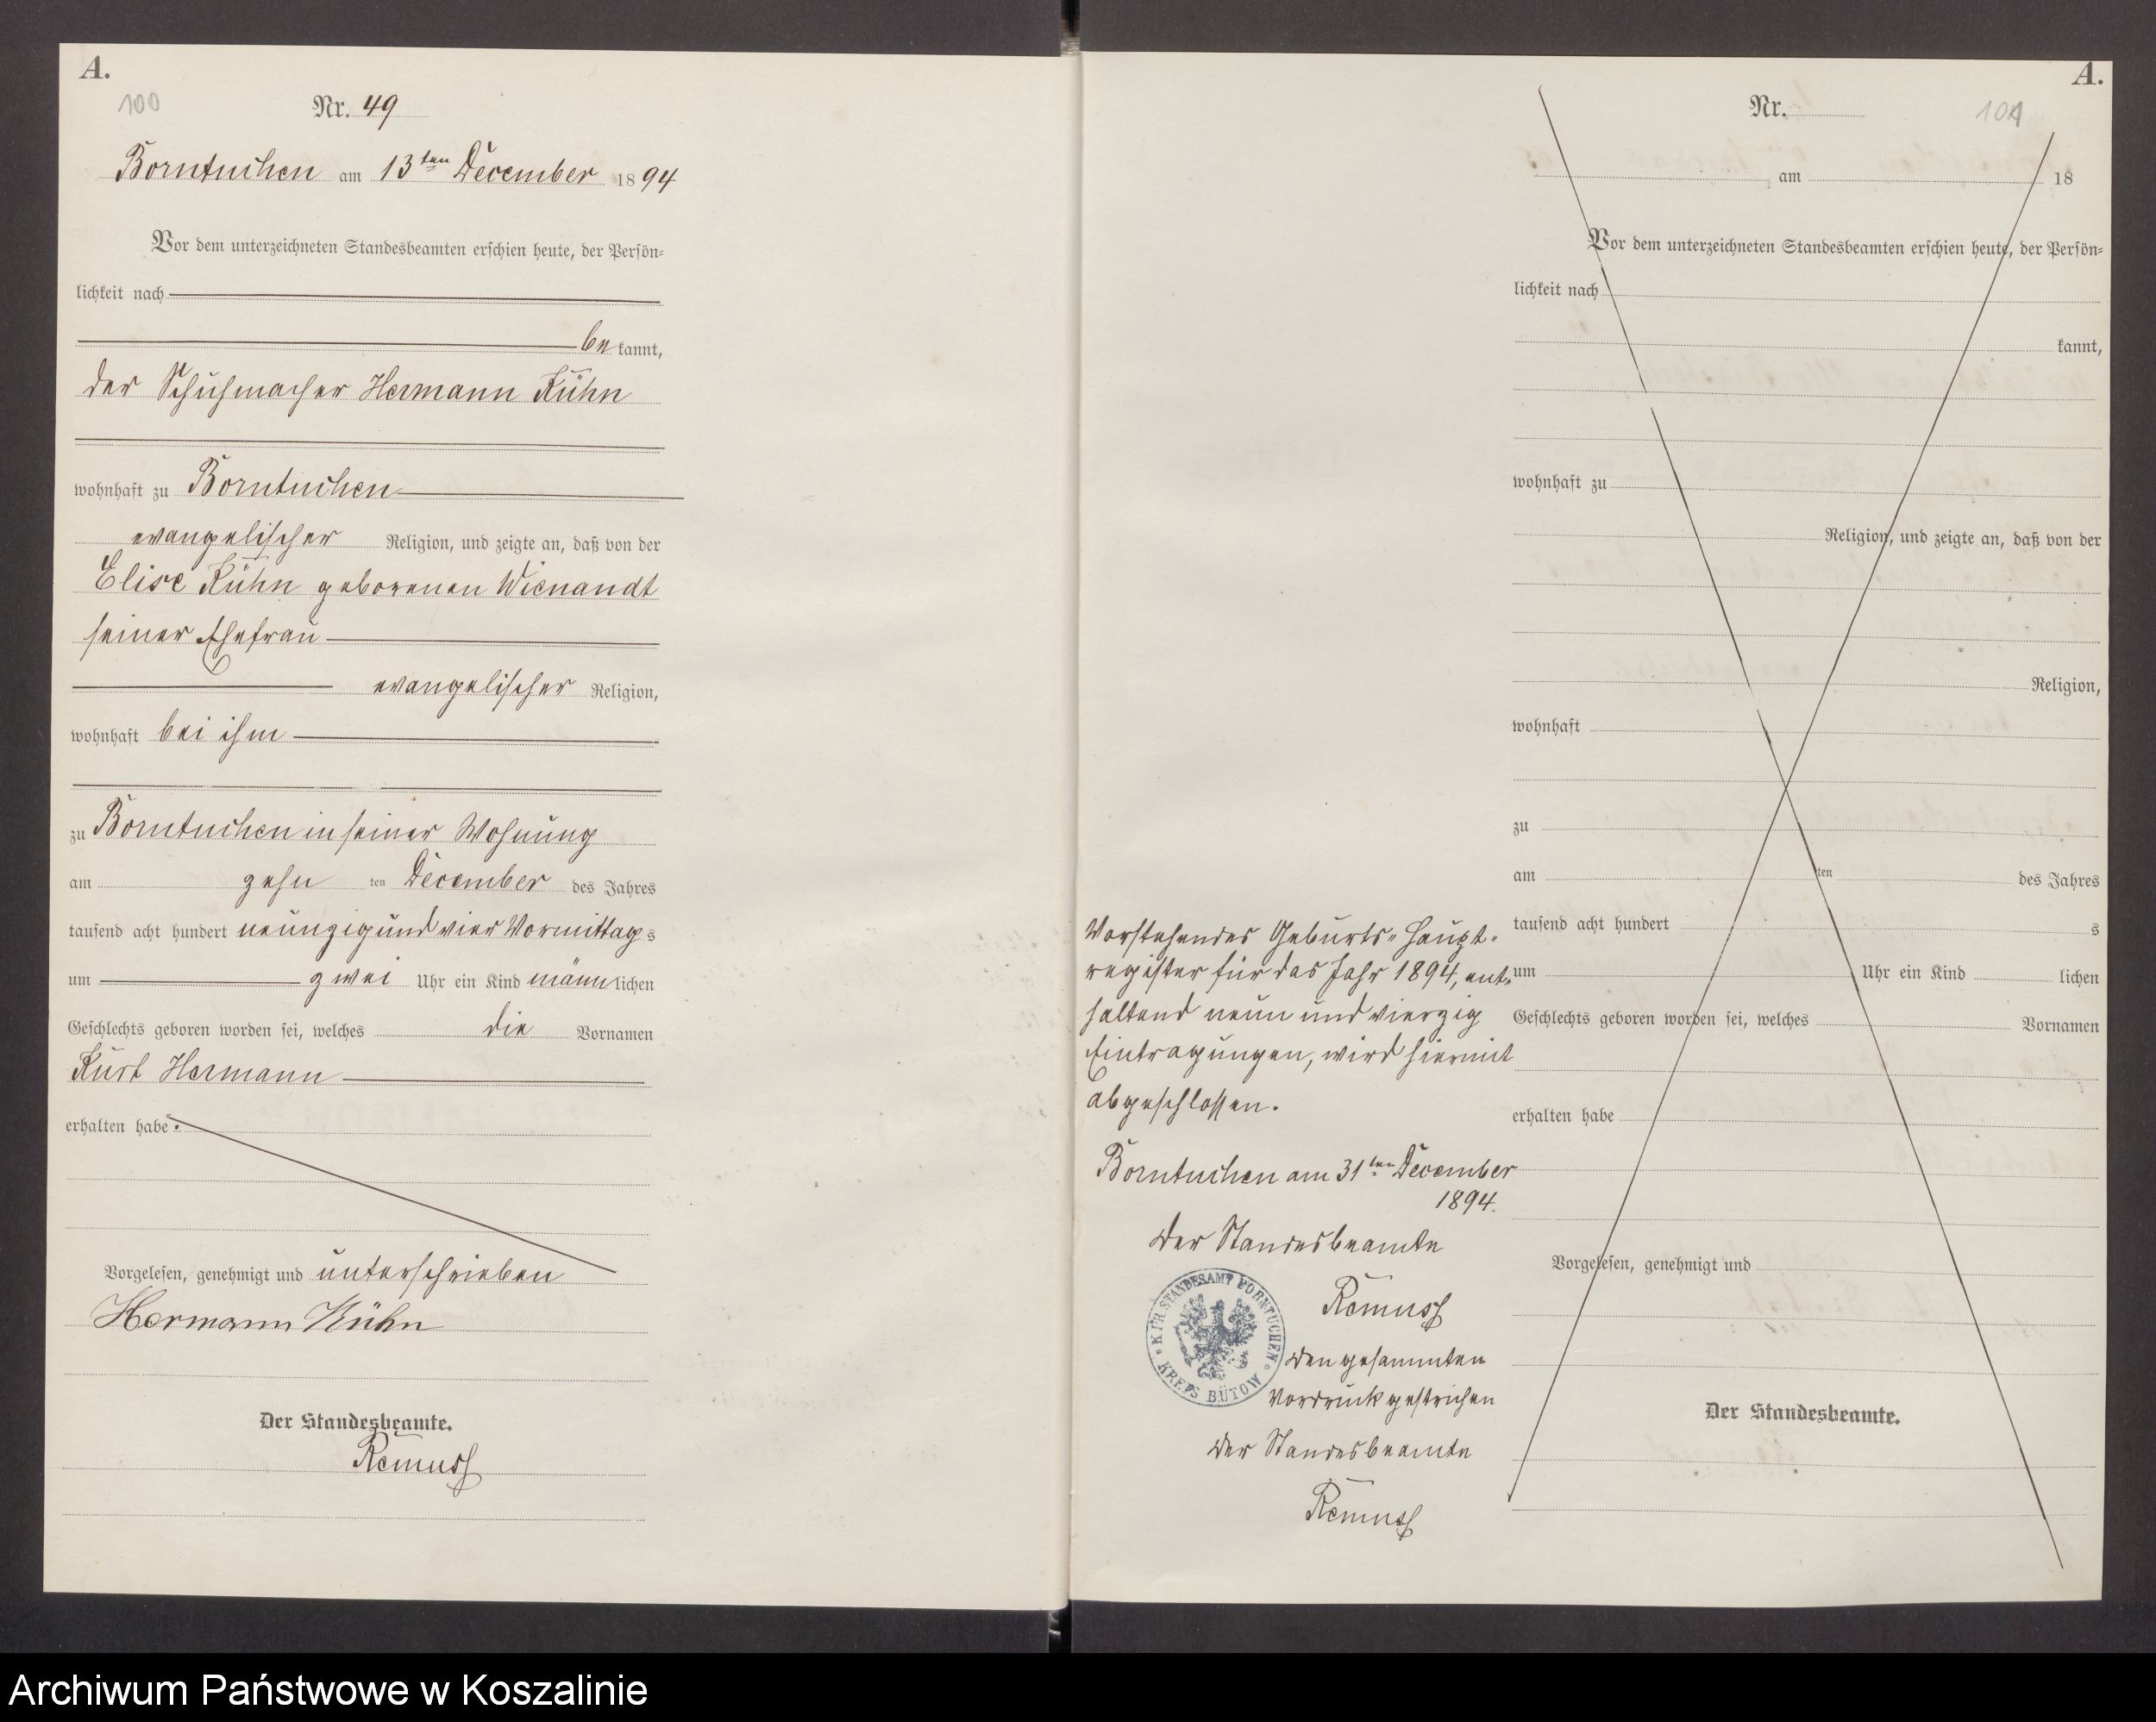 A.
100
Nr. 49
Borntuchen am 13ten December 1894
Vor dem unterzeichneten Standesbeamten erschien heute, der Persön-
lichkeit nach
bekannt,
der Schuhmacher Hermann Kühn
wohnhaft zu Borntuchen
evangelischer Religion, und zeigte an, daß von der
Elise Kühn geborenen Wienandt
seiner Ehefrau
evangelischer Religion,
wohnhaft bei ihm
zu Borntuchen in seiner Wohnung
am zehn ten December des Jahres
tausend acht hundert neunzig und vier Vormittags
um zwei Uhr ein Kind männlichen
Geschlechts geboren worden sei, welches die Vornamen
Kurt Hermann
erhalten habe.
Vorgelesen, genehmigt und unterschrieben
Hermann Kühn
Der Standesbeamte.
Remus
Vorstehendes Geburts-Haupt-
register für das Jahr 1894, ent-
haltend neun und vierzig
Eintragungen, wird hiermit
abgeschlossen.
Borntuchen am 31ten December
1894.
Der Standesbeamte
Remus
K. PR. STANDESAMT BORNTUCHEN
KREIS BÜTOW
Den gesammten
Vordruck gestrichen
Der Standesbeamte
Remus
A.
Nr.
101
am 18
Vor dem unterzeichneten Standesbeamten erschien heute, der Persön-
lichkeit nach
kannt,
wohnhaft zu
Religion, und zeigte an, daß von der
Religion,
wohnhaft
zu
am ten des Jahres
tausend acht hundert s
um Uhr ein Kind lichen
Geschlechts geboren worden sei, welches Vornamen
erhalten habe
Vorgelesen, genehmigt und
Der Standesbeamte.
Archiwum Państwowe w Koszalinie